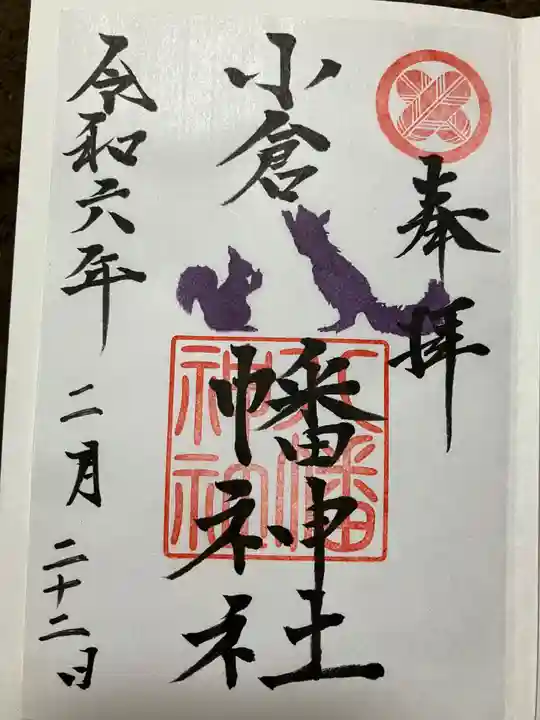 奉拝
小倉八幡神社
八幡
神社
令和六年 二月 二十二日